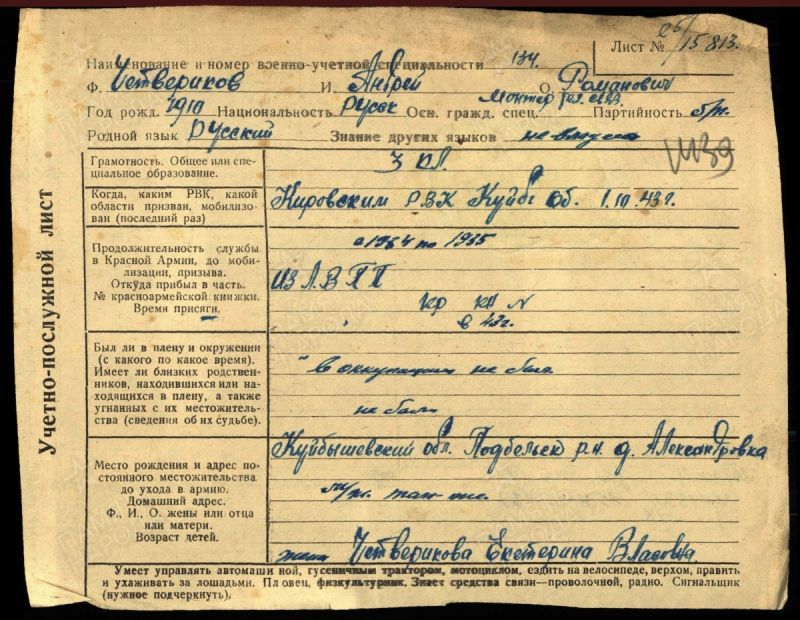 26/15813.
Лист №
Наименование и номер военно-учетной специальности 134.
Ф. Четвериков И. Андрей О. Романович
Год рожд. 1910 Национальность Русск Осн. гражд. спец. Монтер Партийность б/п.
Родной язык Русский Знание других языков не
Учетно-послужной лист
Грамотность. Общее или специальное образование.
3 кл.
Когда, каким РВК, какой области призван, мобилизован (последний раз)
Кировским РВК Куйб об. 1.10.43 г.
Продолжительность службы в Красной Армии, до мобилизации, призыва. Откуда прибыл в часть. № красноармейской книжки. Время присяги.
с 1934 по 1935
из А.В.П.П
Кр кн N
в 43г.
Был ли в плену и окружении (с какого по какое время). Имеет ли близких родственников, находившихся или находящихся в плену, а также угнанных с их местожительства (сведения об их судьбе).
в оккупации не был
не был
Место рождения и адрес постоянного местожительства до ухода в армию. Домашний адрес. Ф., И., О. жены или отца или матери. Возраст детей.
Куйбышевский обл. Подбельск р-н. д. Александровка
там же.
жена Четверикова Екатерина Власовна
Умеет управлять автомашиной, гусеничным трактором, мотоциклом, ездить на велосипеде, верхом, править
и ухаживать за лошадьми. Пловец, физкультурник. Знает средства связи—проволочной, радио. Сигнальщик
(нужное подчеркнуть).